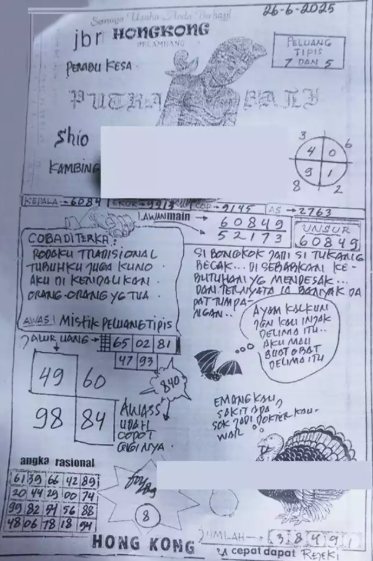 Semoga Usaha Anda Berhasil
26-6-2025
jbr HONGKONG
PALEMBANG
PELUANG
TIPIS
7 DAN 5
PERABU KESA
PUTRA BALI
Shio
KAMBING
3
6
4 0
9 1
8
2
KEPALA → 6084
COP → 9145
AS → 2763
LAWAN main
60849
52173
UNSUR
60849
COBA DITERKA:
RODAKU TRADISIONAL
TUBUHKU JUGA KUNO
AKU DI KENDALIKAN
ORANG-ORANG YG TUA
AWAS! MISTIK PELUANG TIPIS
SI BONGKOK JADI SI TUKANG
BECAK... DI SEBABKAN KE-
BUTUHAN YG MENDESAK...
DAN TERNYATA IA BANYAK DA
PAT TUMPA-
NGAN...
JALUR UANG →
65 02 81
47 93
AYAM KALKUN
JGN KAU INJAK
DELIMA ITU..
AKU MAU
BUAT OBAT
DELIMA ITU
49 60
98 84
840
AWASS
UDAH
COPOT
GIGINYA.
EMANG KAU
SAKIT APA?
SOK JADI DOKTER KAU
WAR
angka rasional
61 39 66 42 89
20 44 29 00 74
99 82 57 56 88
48 06 78 18 94
8
JUMLAH → 3 8 4 9 1
HONG KONG
cepat dapat REJEKI